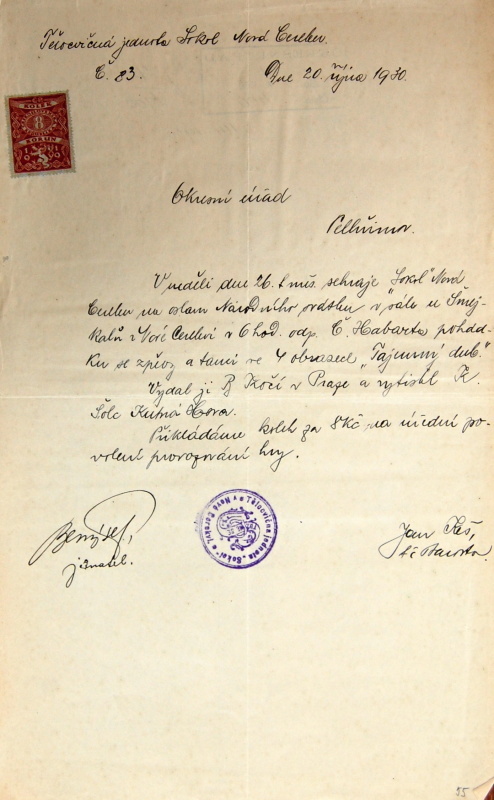 Tělocvičná jednota Sokol Nová Cerekev.
Č. 23. Dne 20. října 1930.
KOLEK
8
KORUN
Okresní úřad
Pelhřimov.
V neděli dne 26. t. měs. sehraje „Sokol“ Nová
Cerekev na oslavu Národního svátku v sále u Smej-
kalů v Nové Cerekvi v 6 hod. odp. Č. Habarta pohád-
ku se zpěvy a tanci ve 4 obrazech „Tajemný dub.“
Vydal ji B Kočí v Praze a vytiskl K.
Šolc Kutná Hora.
Přikládáme kolek za 8 Kč na úřední po-
volení provozování hry.
jednatel.
Jan
t. č. starosta
Tělocvičná jednota "Sokol" Nová Cerekev
55